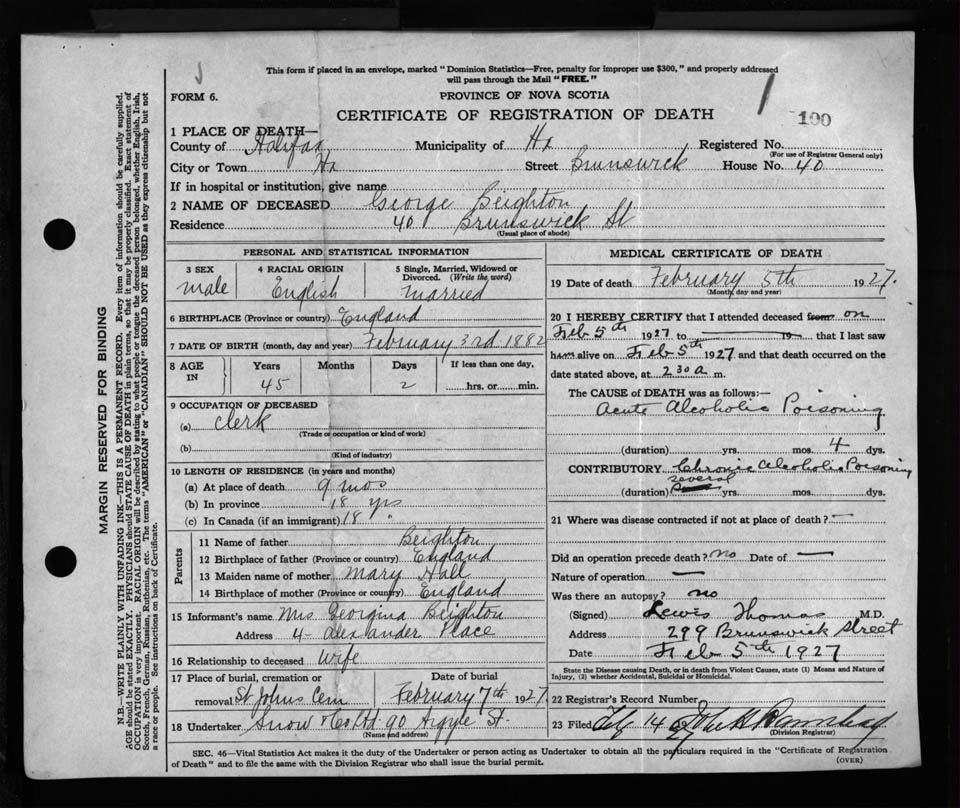 This form if placed in an envelope, marked "Dominion Statistics—Free, penalty for improper use $300," and properly addressed
will pass through the Mail "FREE."
FORM 6.
PROVINCE OF NOVA SCOTIA
CERTIFICATE OF REGISTRATION OF DEATH
190
1 PLACE OF DEATH—
County of Halifax Municipality of Hx Registered No.
(For use of Registrar General only)
City or Town Hx Street Brunswick House No. 40
If in hospital or institution, give name
2 NAME OF DECEASED George Beighton
Residence 40 Brunswick St
(Usual place of abode)
PERSONAL AND STATISTICAL INFORMATION
3 SEX 4 RACIAL ORIGIN 5 Single, Married, Widowed or
Divorced. (Write the word)
male English married
6 BIRTHPLACE (Province or country) England
7 DATE OF BIRTH (month, day and year) February 3rd 1882
8 AGE IN Years Months Days If less than one day,
45 2 hrs. or min.
9 OCCUPATION OF DECEASED
(a) Clerk
(Trade or occupation or kind of work)
(b)
(Kind of industry)
10 LENGTH OF RESIDENCE (in years and months)
(a) At place of death 9 mos
(b) In province 18 yrs
(c) In Canada (if an immigrant) 18 "
Parents
11 Name of father Beighton
12 Birthplace of father (Province or country) England
13 Maiden name of mother Mary Hall
14 Birthplace of mother (Province or country) England
15 Informant's name Mrs Georgina Beighton
Address 4 Alexander Place
16 Relationship to deceased wife
17 Place of burial, cremation or Date of burial
removal St Johns Cem February 7th 1927
18 Undertaker Snow & Co Ltd 90 Argyle St.
(Name and address)
MEDICAL CERTIFICATE OF DEATH
19 Date of death February 5th 1927.
(Month, day and year)
20 I HEREBY CERTIFY that I attended deceased from on
Feb 5th 1927 to 19 that I last saw
h alive on Feb 5th 1927 and that death occurred on the
date stated above, at 2 30 a m.
The CAUSE of DEATH was as follows:—
Acute Alcoholic Poisoning
(duration) yrs. mos. 4 dys.
CONTRIBUTORY Chronic Alcoholic Poisoning
several
(duration) yrs. mos. dys.
21 Where was disease contracted if not at place of death? —
Did an operation precede death? no Date of —
Nature of operation —
Was there an autopsy? no
(Signed) Lewis Thomas M.D.
Address 299 Brunswick Street
Date Feb 5th 1927
State the Disease causing Death, or in death from Violent Causes, state (1) Means and Nature of
Injury, (2) whether Accidental, Suicidal or Homicidal.
22 Registrar's Record Number
23 Filed 14
(Division Registrar)
SEC. 46—Vital Statistics Act makes it the duty of the Undertaker or person acting as Undertaker to obtain all the particulars required in the "Certificate of Registration
of Death" and to file the same with the Division Registrar who shall issue the burial permit.
(OVER)
MARGIN RESERVED FOR BINDING
N.B.—WRITE PLAINLY WITH UNFADING INK—THIS IS A PERMANENT RECORD. Every item of information should be carefully supplied.
AGE should be stated EXACTLY. PHYSICIANS should STATE CAUSE OF DEATH in plain terms, so that it may be properly classified. Exact statement of
OCCUPATION is very important. RACIAL ORIGIN will be described by stating to what people or tongue the deceased person belonged, whether English, Irish,
Scotch, French, German, Russian, Ruthenian, etc. The terms "AMERICAN" or "CANADIAN" SHOULD NOT BE USED as they express citizenship but not
a race or people. See instructions on back of Certificate.